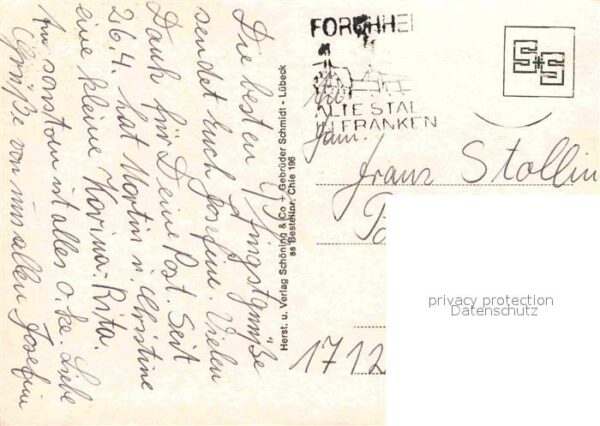 Die besten Pfingstgrüße
sendet Euch Josefine. Vielen
Dank für Deine Post. Seit
26.4. hat Martin u. Christine
eine kleine Karina-Rita.
Ansonsten ist alles o.ke. Liebe
Grüße von uns allen Josefine
Herst. u. Verlag Schöning & Co + Gebrüder Schmidt - Lübeck
ss Bestellnr. Chie 196
FORCHHEI
ALTE STAD
FRANKEN
SS
Fam.
Franz Stollin
1712
privacy protection
Datenschutz